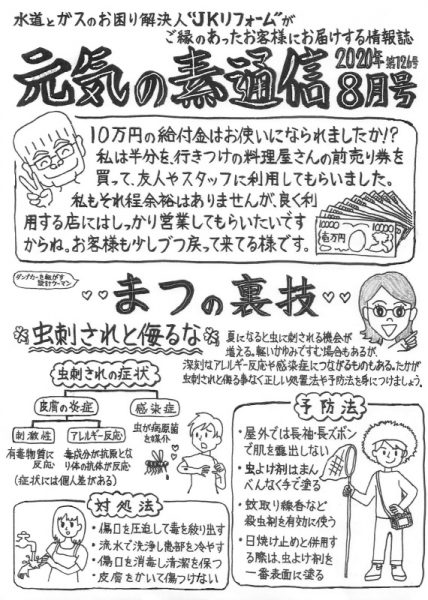 水道とガスのお困り解決人“JKリフォーム”が
ご縁のあったお客様にお届けする情報誌
元気の素通信
2020年 第126号
8月号
10万円の給付金はお使いになられましたか!?
私は半分を、行きつけの料理屋さんの前売り券を
買って、友人やスタッフに利用してもらいました。
私もそれ程余裕はありませんが、良く利
用する店にはしっかり営業してもらいたいです
からね。お客様も少しづつ戻って来てる様です。
10000
10000
壱万円
ダンプカーを転がす
設計ウーマン
まつの裏技
虫刺されと侮るな
夏になると虫に刺される機会が
増える。軽いかゆみですむ場合もあるが、
深刻なアレルギー反応や感染症につながるものもある。たかが
虫刺されと侮る事なく正しい処置法や予防法を身につけましょう。
虫刺されの症状
皮膚の炎症
感染症
刺激性
アレルギー反応
虫が病原菌
を媒介
有毒物質に
反応
毒成分が抗原とな
り体の抗体が反応
(症状には個人差がある)
対処法
・傷口を圧迫して毒を絞り出す
・流水で洗浄し患部を冷やす
・傷口を消毒し清潔を保つ
・皮膚をかいて傷つけない
予防法
・屋外では長袖・長ズボン
で肌を露出しない
・虫よけ剤はまん
べんなく手で塗る
・蚊取り線香など
殺虫剤を有効に使う
・日焼け止めと併用す
る際は、虫よけ剤を
一番表面に塗る